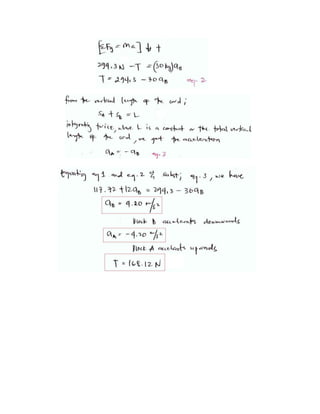 [ΣFy = ma] ↓ +
294.3 N − T = (30kg)aB
T = 294.3 − 30aB eq. 2
from the vertical length of the cord;
SA + SB = L
integrating twice, where L is a constant or the total vertical
length of the cord, we get the acceleration
aA = − aB eq. 3
Equating eq 1 and eq. 2 & subst; eq. 3, we have
117.72 + 12aB = 294.3 − 30aB
aB = 4.20 m/s²
Block B accelerates downwards
aA = −4.20 m/s²
Block A accelerates upwards
T = 168.12 N